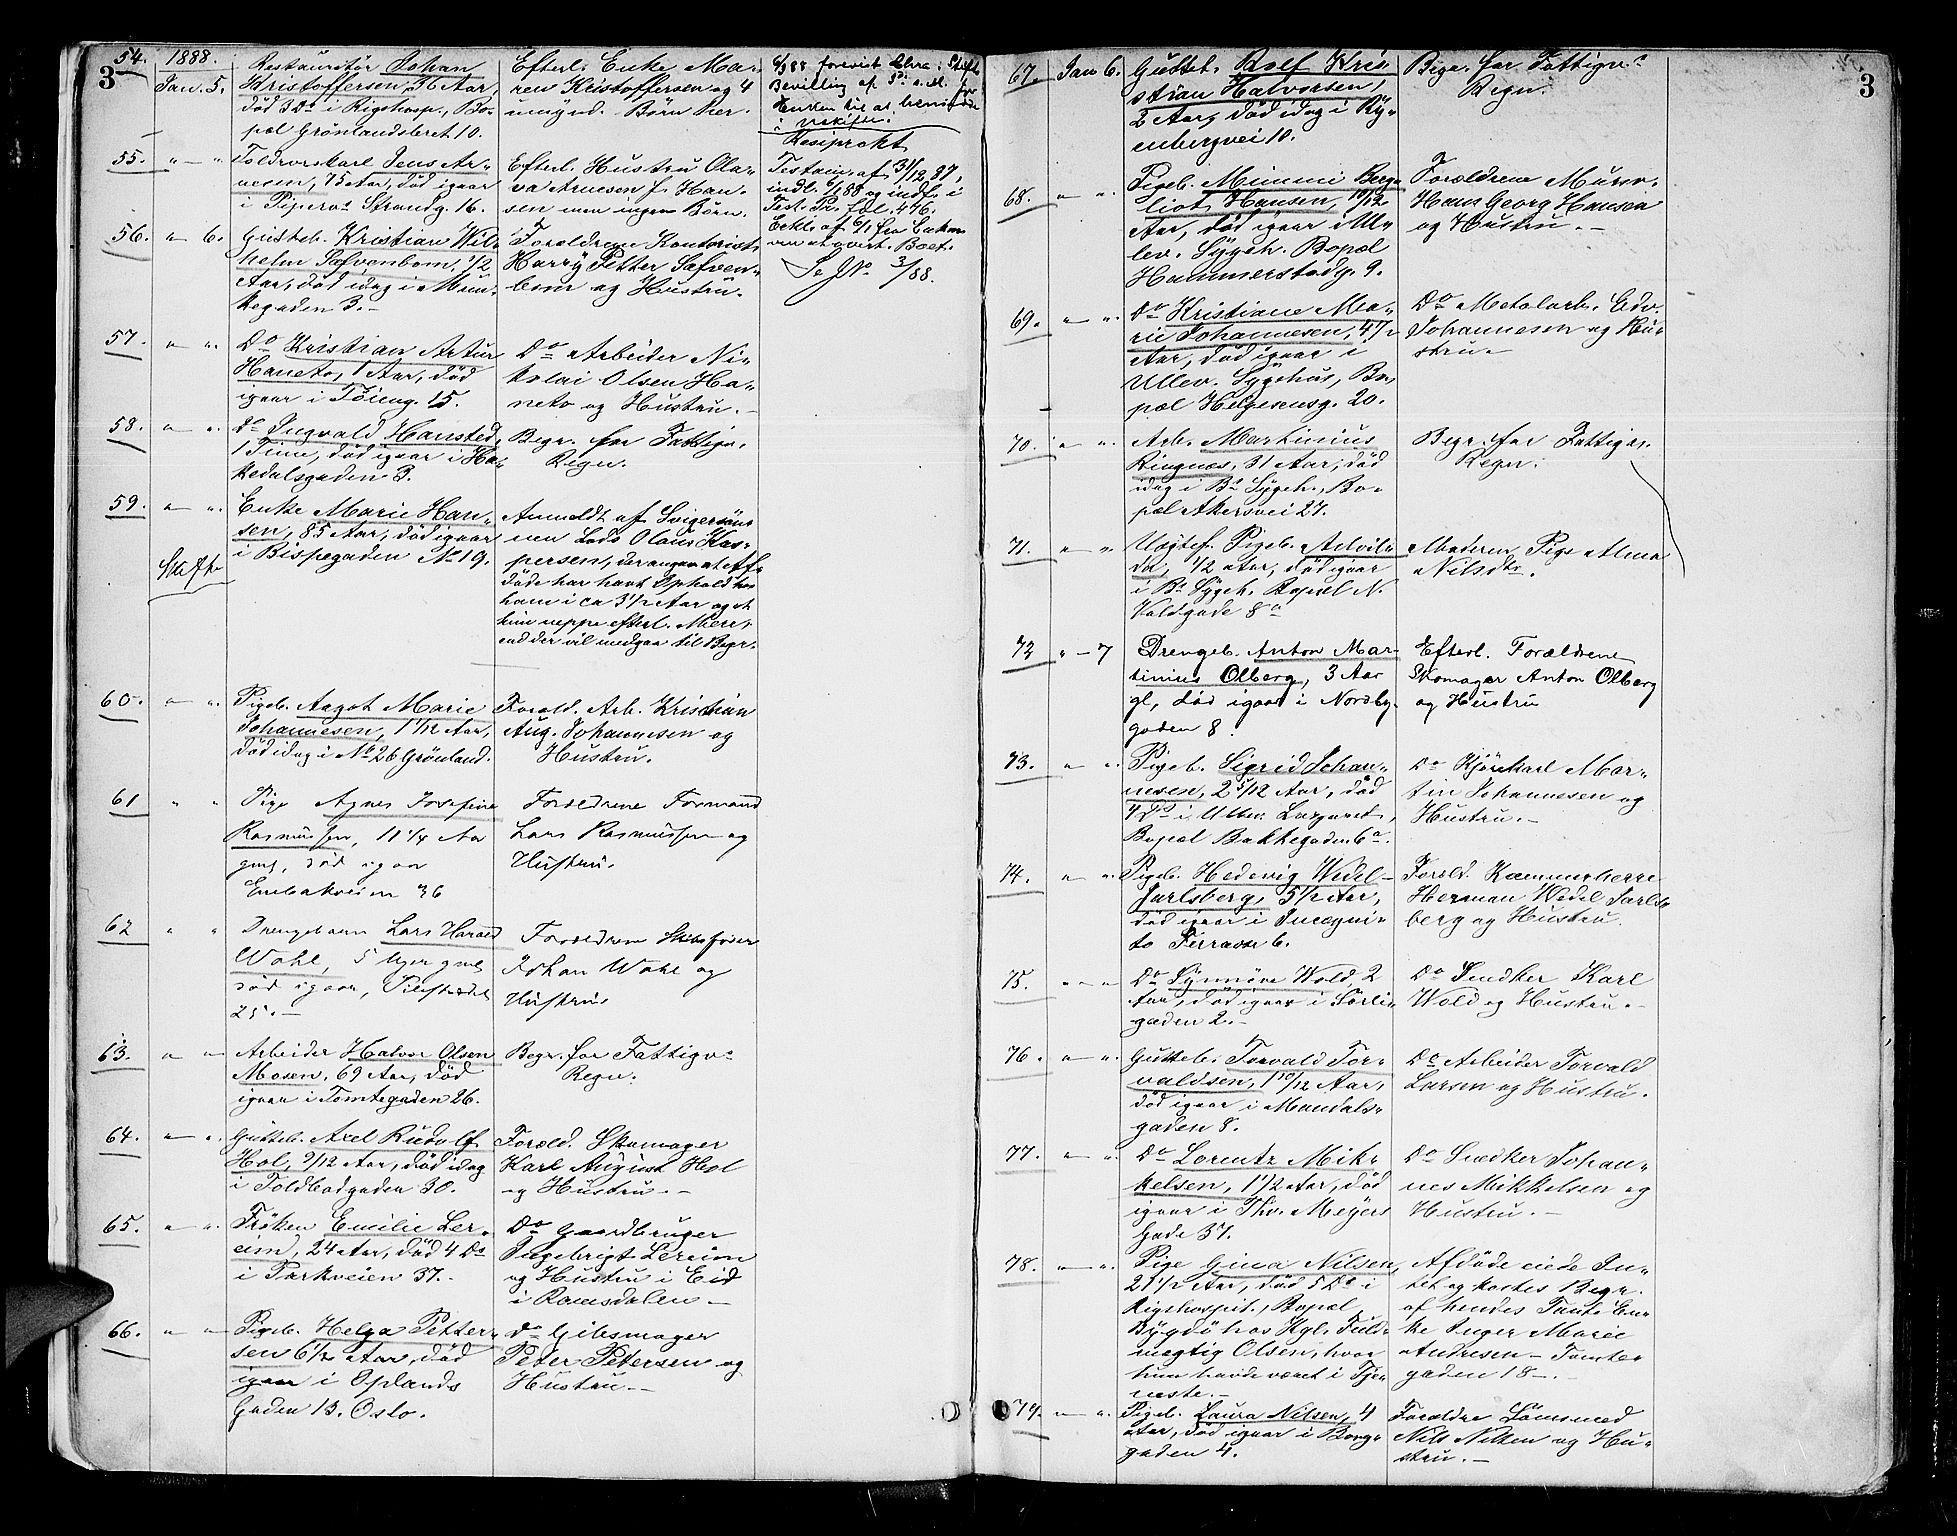 3
54.
1888.
Jan. 5.
Restauratör Johan
Kristoffersen, 36 Aar,
död 3 Ds i Rigshosp., Bo-
pæl Grönlandsleret 10.
Efterl. Enke Ma-
ren Kristoffersen og 4
umynd. Börn her.
Bevilling af
Enken til at hensidde
i uskiftet
Reciprokt
55.
" - "
Toldrorskarl Jens Ar-
nesen, 75 Aar, död igaar
i Pipervs Strandg. 16.
Efterl. Hustru Ola-
va Arnesen f. Han-
sen men ingen Börn.
Testam. af 31/12 87,
indl. /88 og indl. i
Test. Pr. fol. 476.
56.
" - 6.
Gutteb. Kristian Wil-
helm Säfvenbom, 1/2
Aar, död idag i Mun-
kegaden 3. -
Forældrene Kontorist
Harry Petter Säfven-
bom og Hustru.
Erkl. af 6/1 fra Enken
om at overt. Boet.
Se J No 3/88.
57.
" - "
Do Kristian Artur
Haneto, 1 Aar, död
igaar i Töieng. 15.
Do Arbeider Ni-
kolai Olsen Ha-
neto og Hustru. -
58.
" - "
Do Ingvald Hansted,
1 Time, död igaar i Ha-
kedalsgaden 3.
Begr. for Fattigv.
Regn.
59.
" - "
Enke Marie Han-
sen, 85 Aar, död igaar
i Bispegaden No 19.
Anmeldt af Svigersön-
nen Lods Olaus Kas-
persen, der angav at Af-
döde har havt Ophold hos
ham i ca 3 1/2 Aar og at
hun neppe efterl. Mere,
end der vil medgaa til Begr.
60.
" - "
Pigeb. Aagot Marie
Johannesen, 1 1/12 Aar,
död idag i No 26 Grönland.
Foræld. Arb. Kristian
Aug. Johannesen og
Hustru.
61
" "
Pige Agnes Josefine
Rasmussen, 11 1/4 Aar
gml, död igaar
Enebakveien 36
Forældrene Formand
Lars Rasmussen og
Hustru.
62
" "
Drengebarn Lars Harald
Wohl, 5 Uger gml,
död igaar, Pilestrædet
25. -
Forældrene Skibsförer
Johan Wohl og
Hustru
63.
" - "
Arbeider Halvor Olsen
Mosen, 69 Aar, död
igaar i Tomtegaden 26.
Begr. for Fattigvs
Regn.
64.
" - "
Gutteb. Axel Rudolf
Hol, 9/12 Aar, död idag
i Toldbodgaden 30.
Foræld. Skomager
Karl August Hol
og Hustru. -
65.
" - "
Fröken Emilie Ler-
eim, 24 Aar, död 4 Ds
i Parkveien 37. -
Do Gaardbruger
Ingebrigt Lereim
og Hustru i Eid
i Romsdalen -
66.
" - "
Pigeb. Helga Petter-
sen 6 1/2 Aar, död
igaar i Oplands
Gaden 13. Oslo.
Do Gibsmager
Peter Petersen og
Hustru. -
3
67.
Jan 6.
Gutteb. Rolf Kris
stian Halvorsen,
2 Aar, död idag i Ry-
enbergvei 10.
Begr. for Fattigvs
Regn.
68.
" "
Pigeb. Mimmi Berg-
liot Hansen, 10/12
Aar, död igaar i Ul-
lev. Sygeh. Bopæl
Hammerstadg. 9.
Forældrene Murer
Hans Georg Hansen
og Hustru. -
69.
" - "
Do Kristiane Ma-
rie Johannesen, 4 1/2
Aar, död igaar i
Ullev. Sygehus, Bo-
pæl Helgesensg. 20.
Do Metalarb. Edv.
Johannesen og Hu-
stru. -
70.
" - "
Arb. Martinius
Ringnes, 31 Aar, död
idag i Bs Sygeh., Bo-
pæl Akersvei 27.
Begr. for Fattigvs
Regn.
71.
" - "
Uægtef. Pigeb. Advil-
da, 1/2 Aar, död igaar
i Bs Sygeh. Bopæl N.
Voldgade 8a
Moderen Pige Alma
Nilsdtr.
72
" - 7
Drengeb. Anton Mar-
tinius Olberg, 3 Aar
gl, död igaar i Nordby-
gaden 8.
Efterl. Forældrene
Skomager Anton Olberg
og Hustru
73.
" "
Pigeb. Sigrid Johan-
nesen, 2 5/12 Aar, död
4 Ds i Ullev. Lazareth,
Bopæl Bakkegaden 6a.
Do Kjörekarl Mar-
tin Johannesen og
Hustru. -
74.
" "
Pigeb. Hedevig Wedel-
Jarlsberg, 5 1/2 Aar,
död igaar i Incogni-
to Terrasse 6.
Foræld. Kammerherre
Herman Wedel Jarls-
berg og Hustru.
75.
" - "
Do Synnöve Wold, 2
Aar, död igaar i Sörli-
gaden 2. -
Do Snedker Karl
Wold og Hustru. -
76.
" - "
Gutteb. Torvald Tor-
valdsen, 1 10/12 Aar,
död igaar i Mandals-
gaden 8.
Do Arbeider Torvald
Larsen og Hustru.
77.
" - "
Do Lorentz Mik-
kelsen, 1 1/2 Aar, död
igaar i Thv. Meyers
Gade 37.
Do Snedker Johan-
nes Mikkelsen og
Hustru. -
78.
" - "
Pige Gina Nilsen,
21 1/2 Aar, död 5 Ds i
Rigshospit., Bopæl
Bygdö hos Kgl. Fuld-
mægtig Olsen, hvor
hun havde været i Tje-
neste. -
Afdöde eiede In-
tet og kostes Begr.
af hendes Tante En-
ke Inger Marie
Andresen - Tomte-
gaden 18 -
79.
" - "
Pigeb. Laura Nilsen, 4
Aar, död igaar i Borg-
gaden 4.
Forældre Lönsmed
Nils Nilsen og Hu-
stru. -